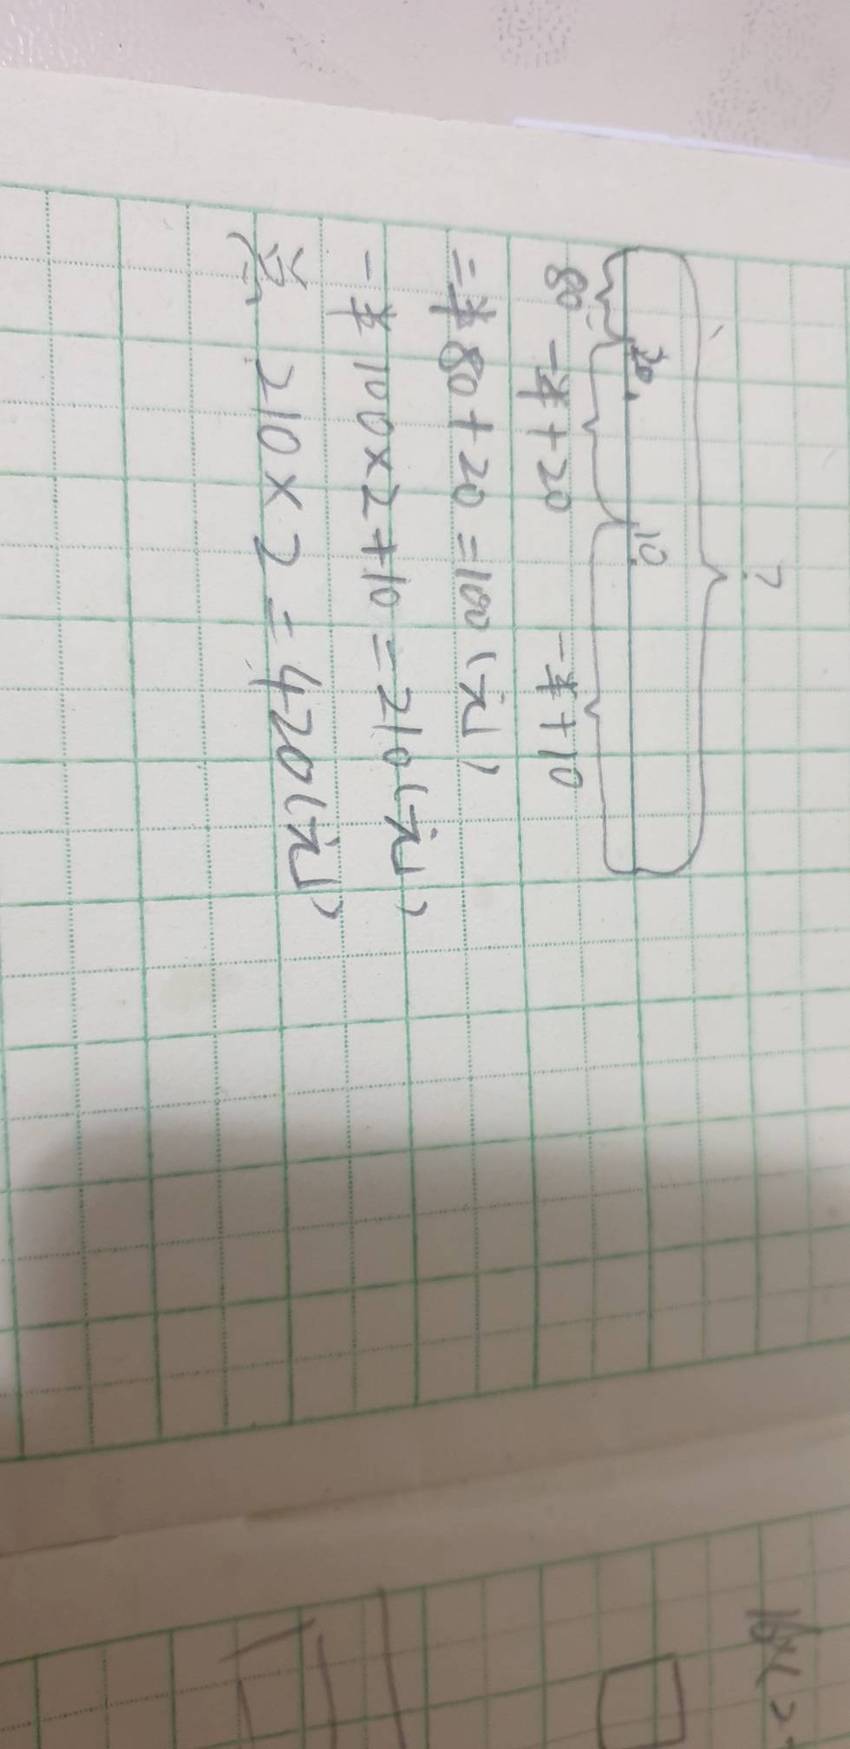 ?
20 10
80 一半+20 一半+10
二半80+20=100(元)
一半100×2+10=210(元)
总 210×2=420(元)